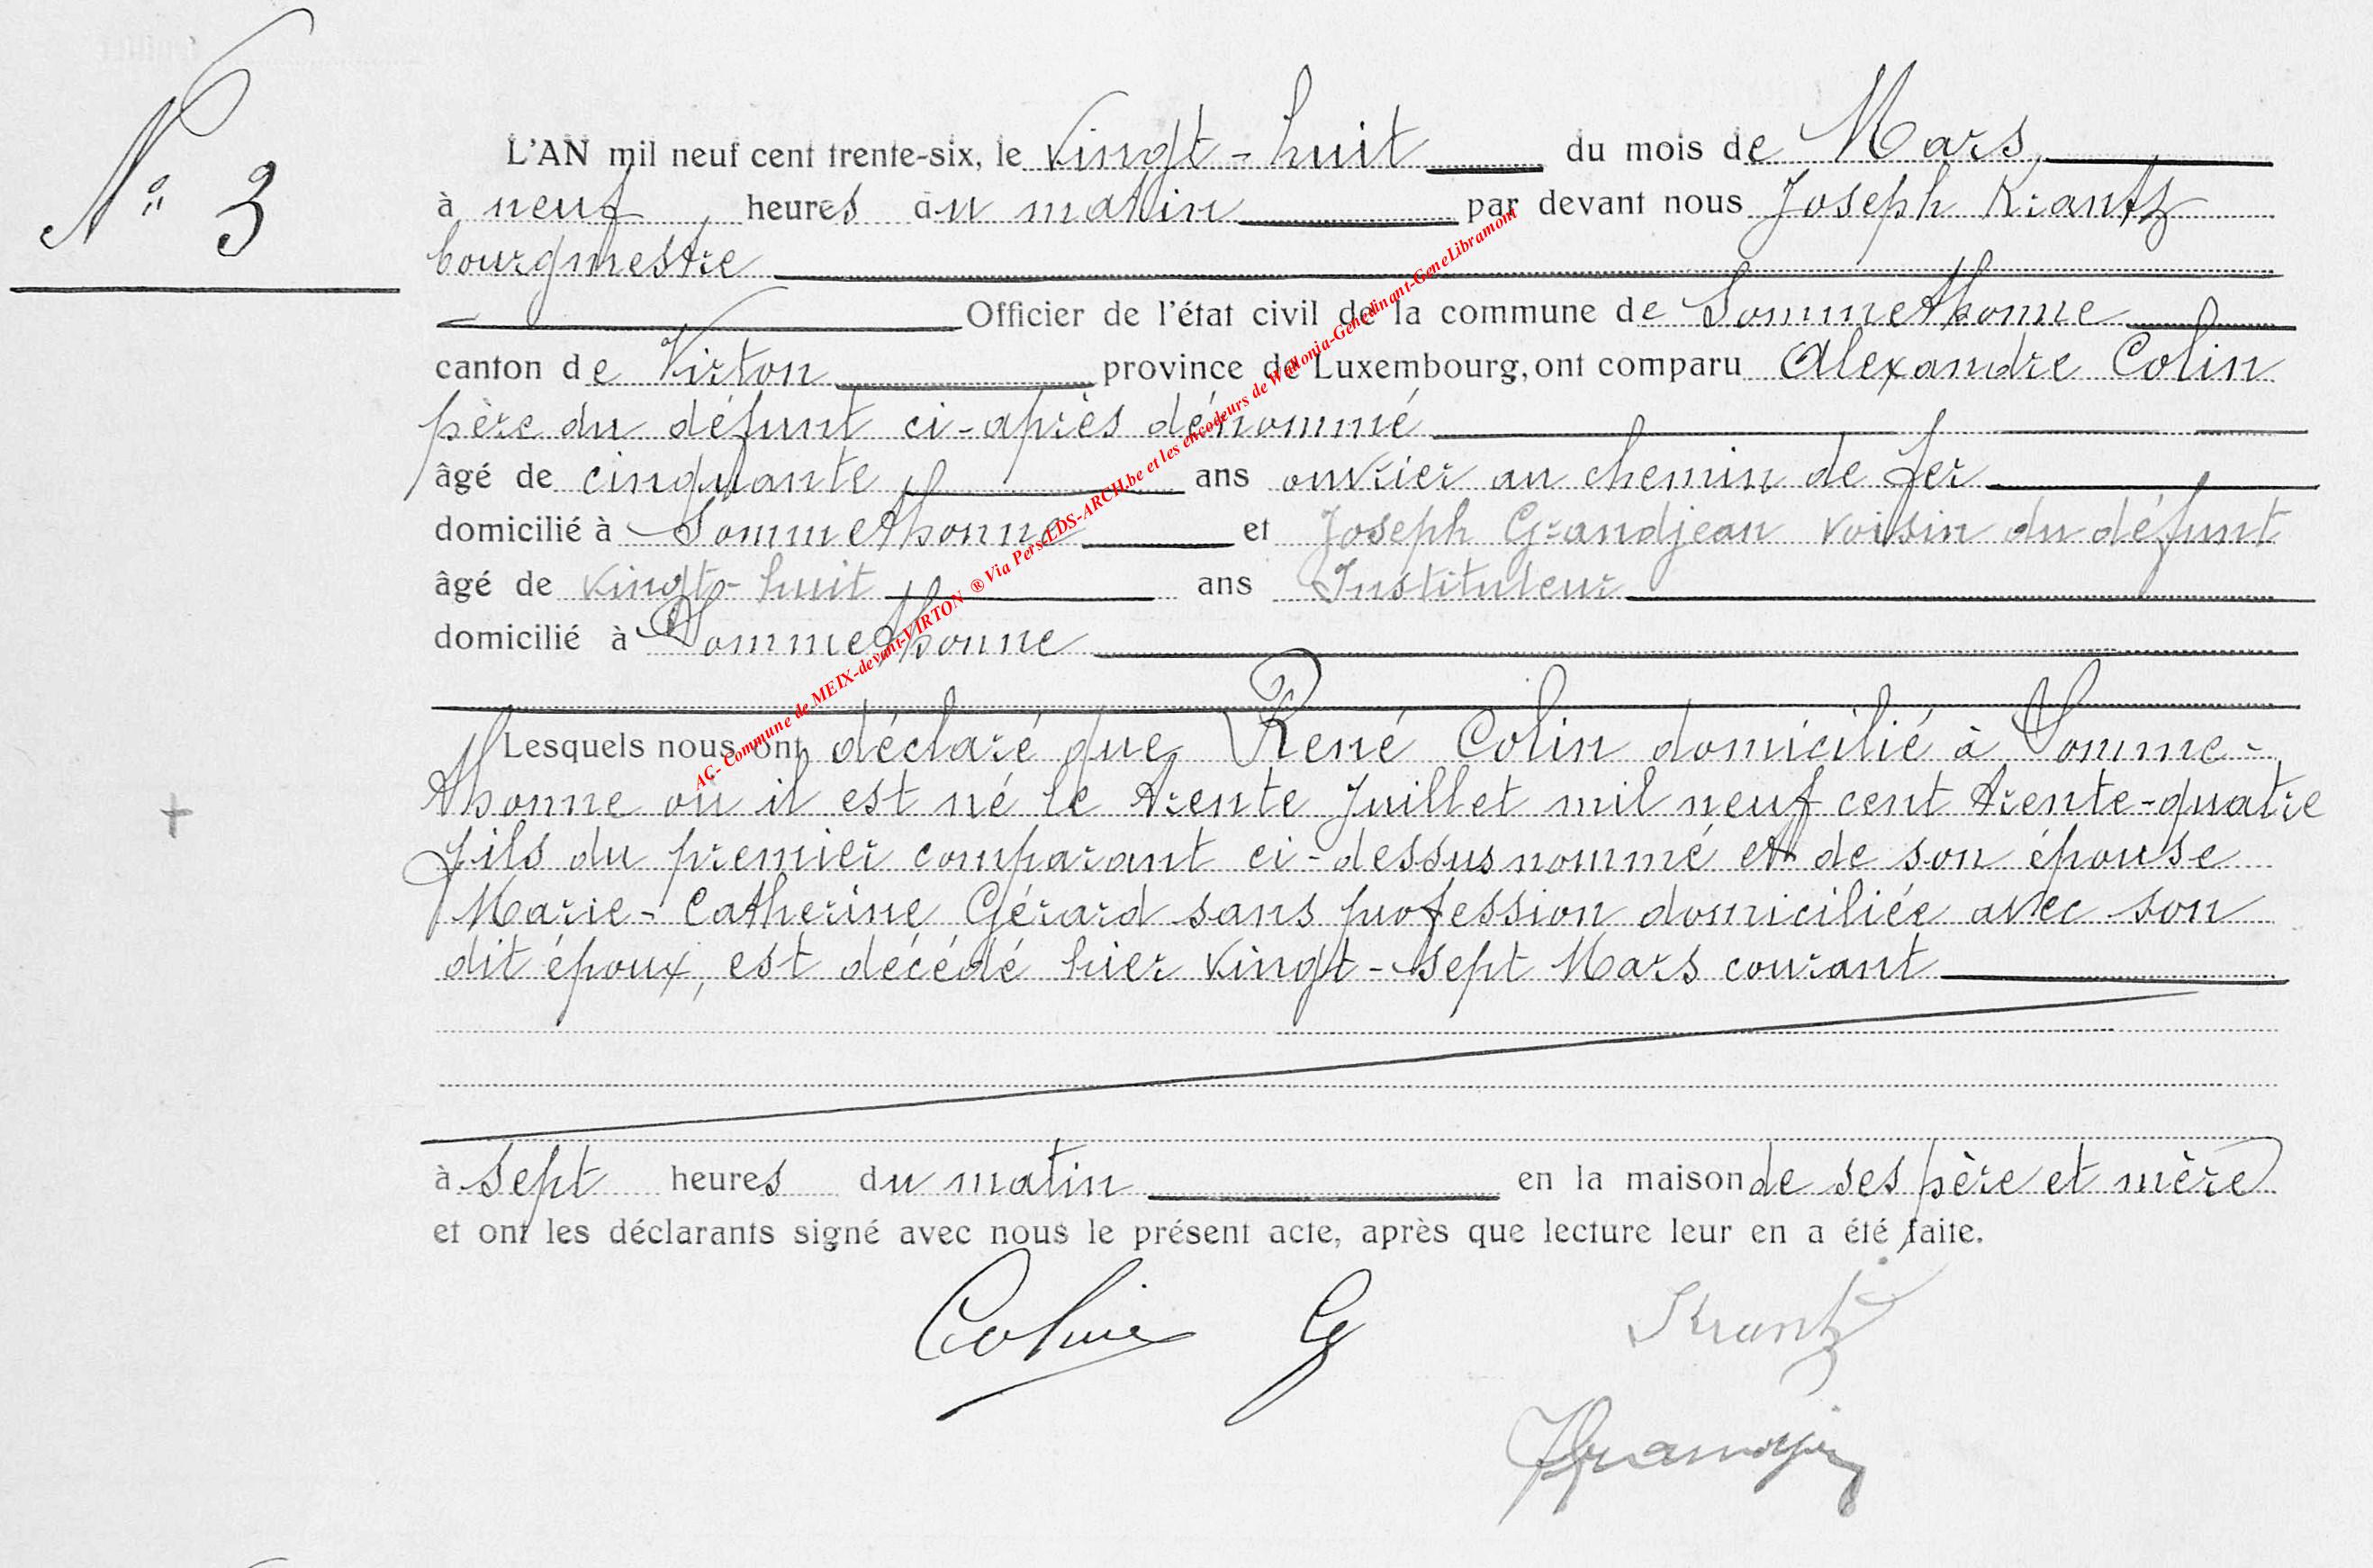 N° 3
L'AN mil neuf cent trente-six, le vingt-huit du mois de Mars,
à neuf heures du matin par devant nous Joseph Krantz
bourgmestre
Officier de l'état civil de la commune de Sommethonne
canton de Virton province de Luxembourg, ont comparu Alexandre Colin
père du défunt ci-après dénommé
âgé de cinquante ans ouvrier au chemin de fer
domicilié à Sommethonne et Joseph Grandjean voisin du défunt
âgé de vingt-huit ans Instituteur
domicilié à Sommethonne
Lesquels nous ont déclaré que René Colin domicilié à Somme-
thonne où il est né le trente Juillet mil neuf cent trente-quatre
fils du premier comparant ci-dessus nommé et de son épouse
Marie-Catherine Gérard sans profession domiciliée avec son
dit époux, est décédé hier vingt-sept Mars courant
à sept heures du matin en la maison de ses père et mère
et ont les déclarants signé avec nous le présent acte, après que lecture leur en a été faite.
Colin G Krantz
AC- Commune de MEIX-devant-VIRTON ® Via Pers-LDS-ARCH.be et les encodeurs de Wallonia-Genedinant-GeneLibramont